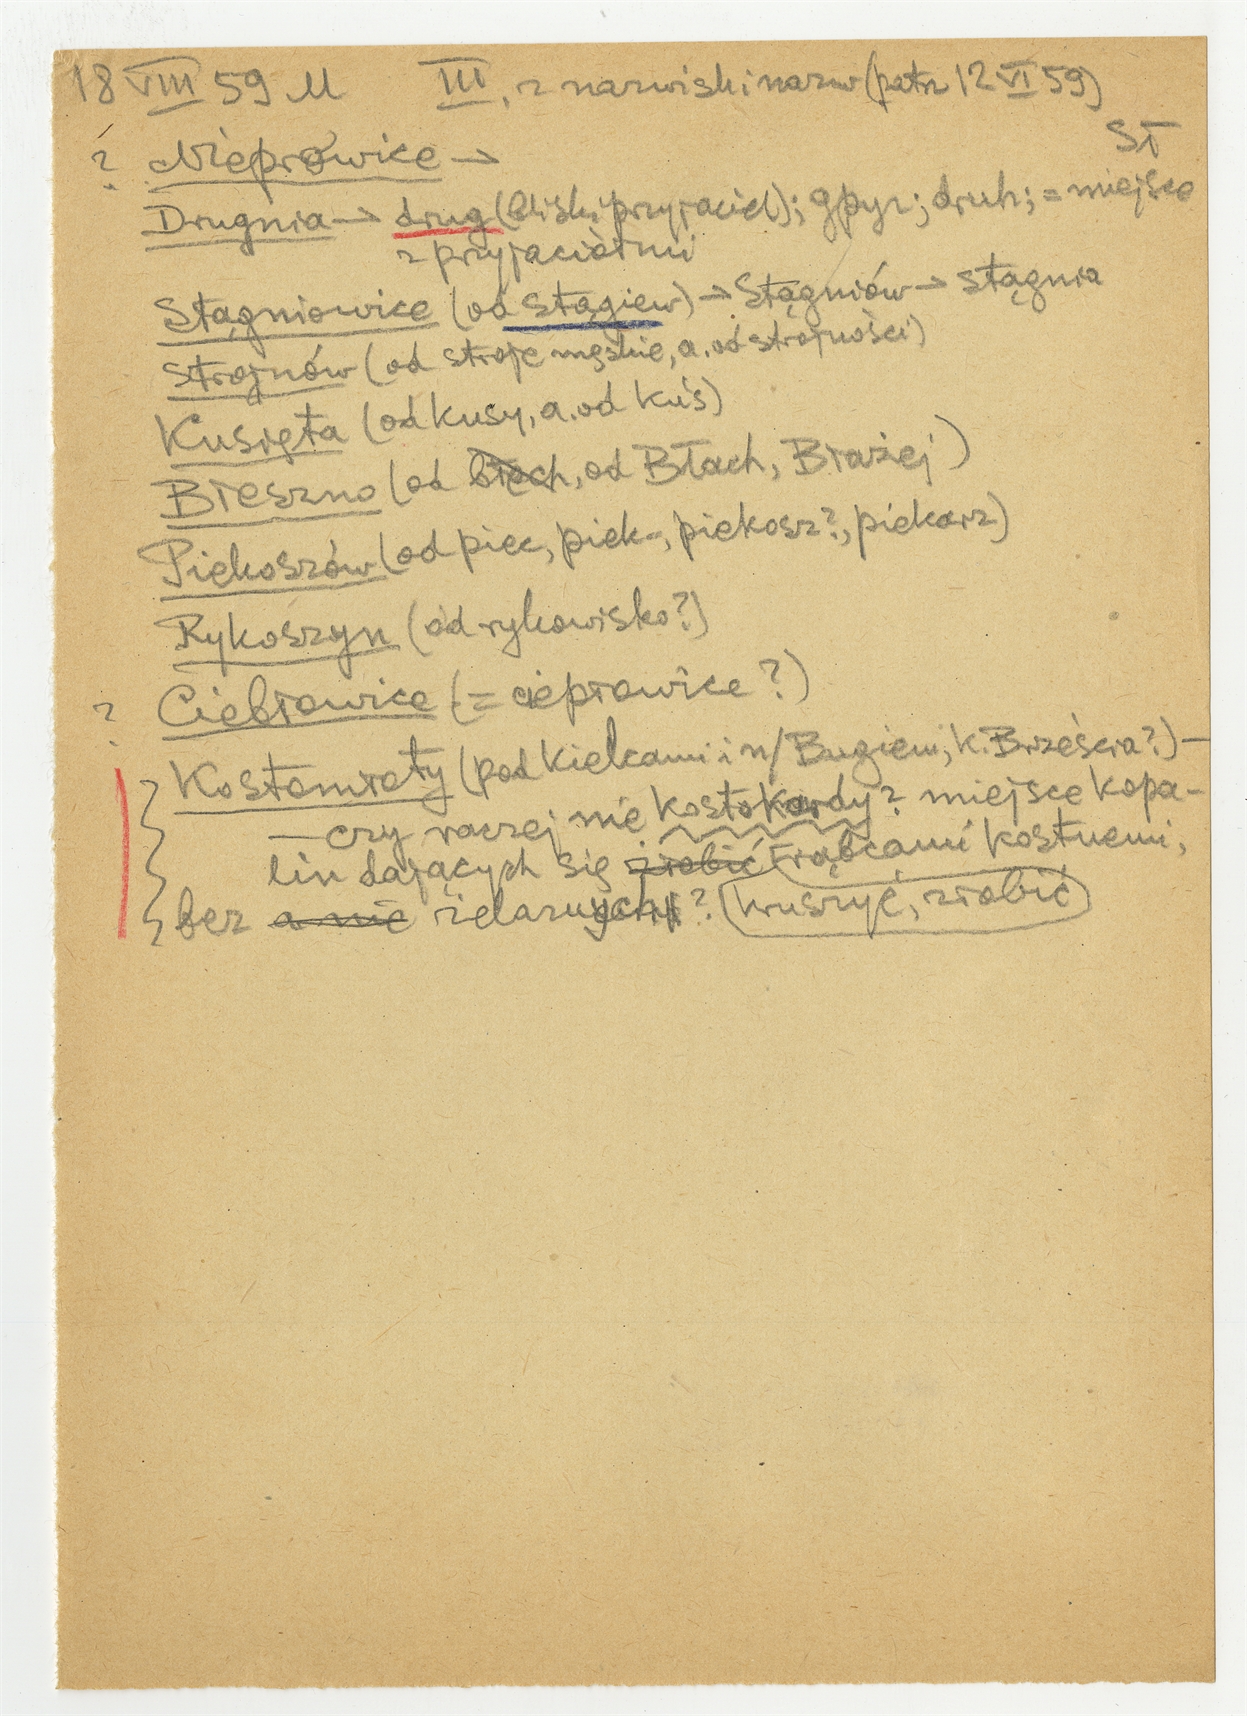 18 VIII 59 M III, z nazwisk i nazw (patrz 12 VI 59)
SŁ
? Nieprowice →
Drugnia → drug (bliski przyjaciel); друг; druh; = miejsce
z przyjaciółmi
Stągniowice (od stągiew) → Stągniów → stągnia
Strojnów (od stroje męskie, a. od strojności)
Kusięta (od kusy, a. od kuś)
Błeszno (od błech, od Błach, Błażej)
Piekoszów (od piec, piek-, piekosz?, piekarz)
Rykoszyn (od rykowisko?)
? Ciebłowice (= cieplowice?)
Kostomłoty (pod Kielcami i n/Bugiem, k. Brześcia?) —
— czy raczej nie kosto kardy? miejsce kopa-
lin dających się zrobić rąbcami kostnemi,
bez a nie żelaznych? (kruszyć, zrobić)